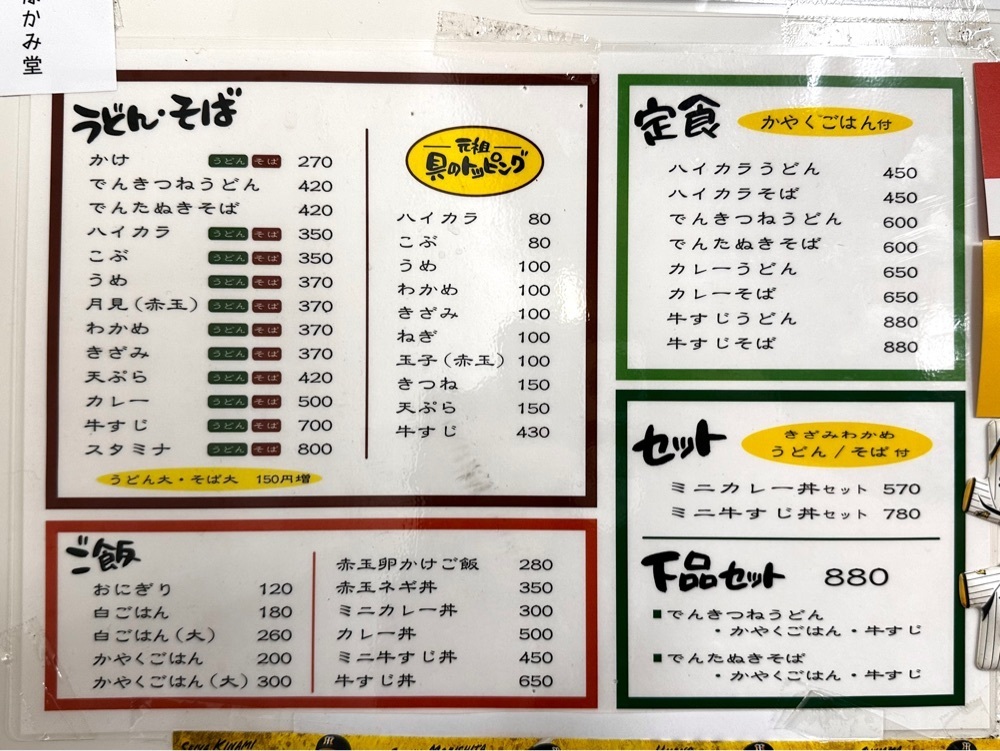 かみ堂
うどん・そば
かけ うどん そば 270
でんきつねうどん 420
でんたぬきそば 420
ハイカラ うどん そば 350
こぶ うどん そば 350
うめ うどん そば 370
月見(赤玉) うどん そば 370
わかめ うどん そば 370
きざみ うどん そば 370
天ぷら うどん そば 420
カレー うどん そば 500
牛すじ うどん そば 700
スタミナ うどん そば 800
うどん大・そば大 150円増
元祖
具のトッピング
ハイカラ 80
こぶ 80
うめ 100
わかめ 100
きざみ 100
ねぎ 100
玉子(赤玉) 100
きつね 150
天ぷら 150
牛すじ 430
定食 かやくごはん付
ハイカラうどん 450
ハイカラそば 450
でんきつねうどん 600
でんたぬきそば 600
カレーうどん 650
カレーそば 650
牛すじうどん 880
牛すじそば 880
セット
きざみわかめ
うどん/そば付
ミニカレー丼セット 570
ミニ牛すじ丼セット 780
下品セット 880
■でんきつねうどん
・かやくごはん・牛すじ
■でんたぬきそば
・かやくごはん・牛すじ
ご飯
おにぎり 120
白ごはん 180
白ごはん(大) 260
かやくごはん 200
かやくごはん(大) 300
赤玉卵かけご飯 280
赤玉ネギ丼 350
ミニカレー丼 300
カレー丼 500
ミニ牛すじ丼 450
牛すじ丼 650
SEIYA KINAMI
MORISHITA